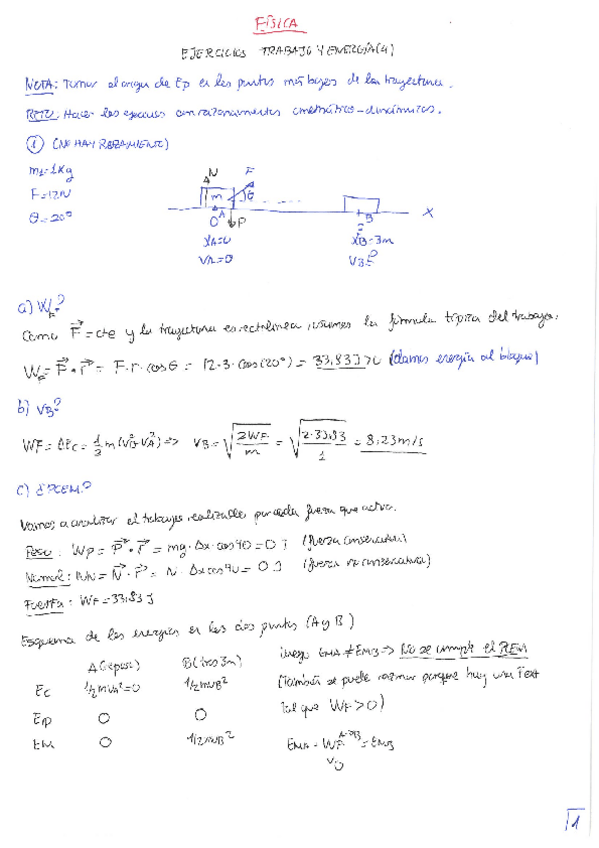 FÍSICA
EJERCICIOS TRABAJO Y ENERGÍA (4)
NOTA: Tomar el origen de Ep en los puntos más bajos de la trayectoria.
RETO: Hacer los apartados con razonamientos cinemático-dinámicos.
① (NO HAY ROZAMIENTO)
m=1Kg
F=12N
θ=20°
N F
m θ
O A P B X
XA=0 XB=3m
VA=0 VB?
a) WF?
Como F=cte y la trayectoria es rectilínea, usamos la fórmula típica del trabajo.
WF=F·r=F·r·cosθ=12·3·cos(20°)=33,83J>0 (damos energía al bloque)
b) VB?
WF=ΔEc=1/2 m(VB²-VA²)=> VB=√(2WF/m)=√(2·33,83/1)=8,23m/s
c) ¿PCEM?
Vamos a analizar el trabajo realizado por cada fuerza que actúa.
Peso: WP=P·r=mg·Δx·cos90=0J (fuerza conservativa)
Normal: WN=N·r=N·Δx cos90=0J (fuerza no conservativa)
Fuerza: WF=33,83J
Esquema de las energías en los dos puntos (A y B)
A (reposo) B (tras 3m) luego EMA≠EMB=> No se cumple el PCEM
Ec 1/2mVA²=0 1/2mVB² (También se puede razonar porque hay una Fext
Ep 0 0 tal que WF>0)
EM 0 1/2mVB² EMA+WF A→B=EMB
1